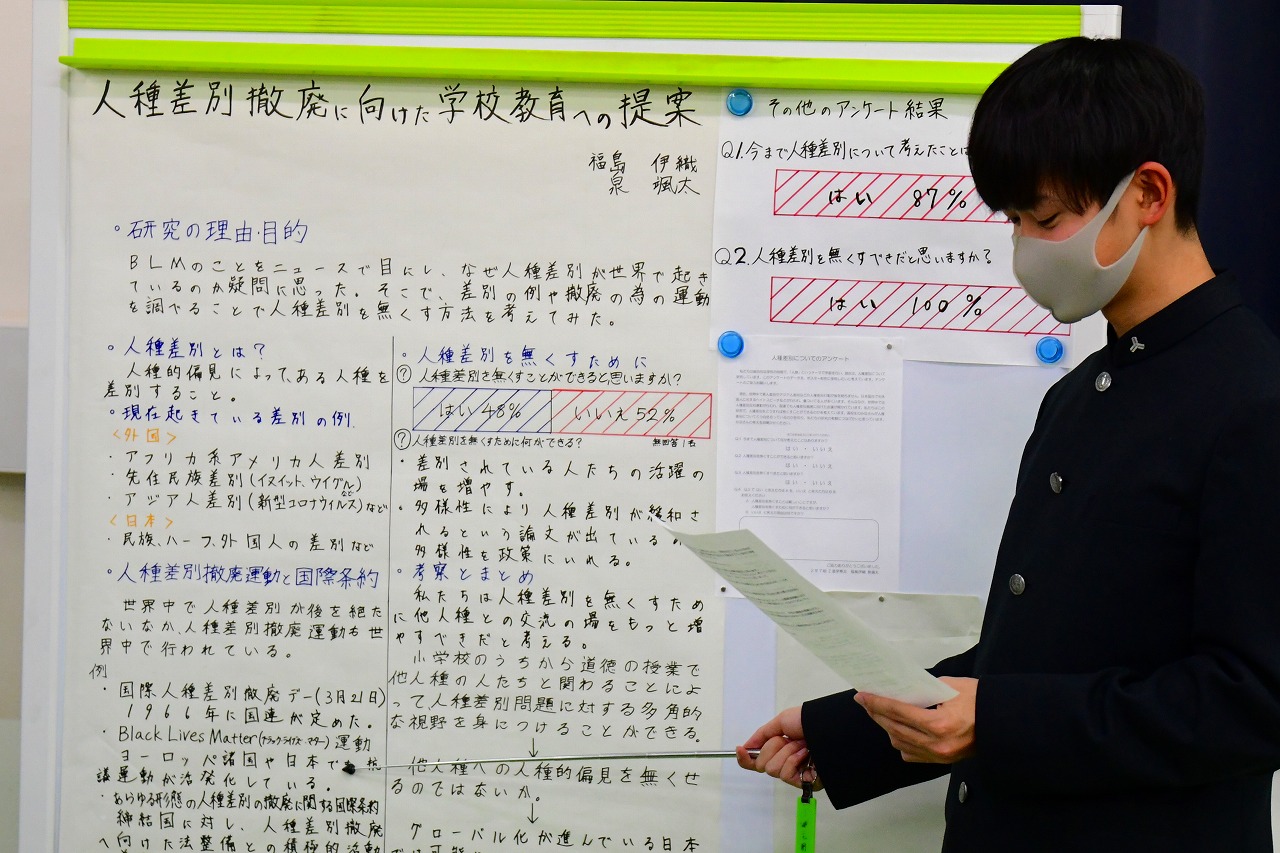 人種差別撤廃に向けた学校教育への提案
福島 伊織
泉 颯太
。研究の理由・目的
BLMのことをニュースで目にし、なぜ人種差別が世界で起き
ているのか疑問に思った。そこで、差別の例や撤廃の為の運動
を調べることで人種差別を無くす方法を考えてみた。
。人種差別とは?
人種的偏見によって、ある人種を
差別すること。
。現在起きている差別の例.
<外国>
・アフリカ系アメリカ人差別
・先住民族差別(イヌイット、ウイグルなど)
・アジア人差別(新型コロナウイルス)など
<日本>
・民族、ハーフ、外国人の差別など
。人種差別撤廃運動と国際条約
世界中で人種差別が後を絶た
ないなか、人種差別撤廃運動も世
界中で行われている。
例
・国際人種差別撤廃デー(3月21日)
1966年に国連が定めた。
・Black Lives Matter(ブラック・ライヴズ・マター)運動
ヨーロッパ諸国や日本でも抗
議運動が活発化している。
・あらゆる形態の人種差別の撤廃に関する国際条約
締結国に対し、人種差別撤廃
へ向けた法整備との積極的活動
。人種差別を無くすために
?人種差別を無くすことができると思いますか?
はい 48% いいえ 52%
?人種差別を無くすために何ができる? 無回答1名
・差別されている人たちの活躍の
場を増やす。
・多様性により人種差別が緩和さ
れるという論文が出ている
多様性を政策にいれる。
。考察とまとめ
私たちは人種差別を無くすため
に他人種との交流の場をもっと増
やすべきだと考える。
小学校のうちから道徳の授業で
他人種の人たちと関わることによ
って、人種差別問題に対する多角的
な視野を身につけることができる。
↓
他人種への人種的偏見を無くせ
るのではないか。
↓
グローバル化が進んでいる日本
その他のアンケート結果
Q1.今まで人種差別について考えたことは
はい 87%
Q2.人種差別を無くすべきだと思いますか?
はい 100%
人種差別についてのアンケート
はい ・ いいえ
はい ・ いいえ
はい ・ いいえ